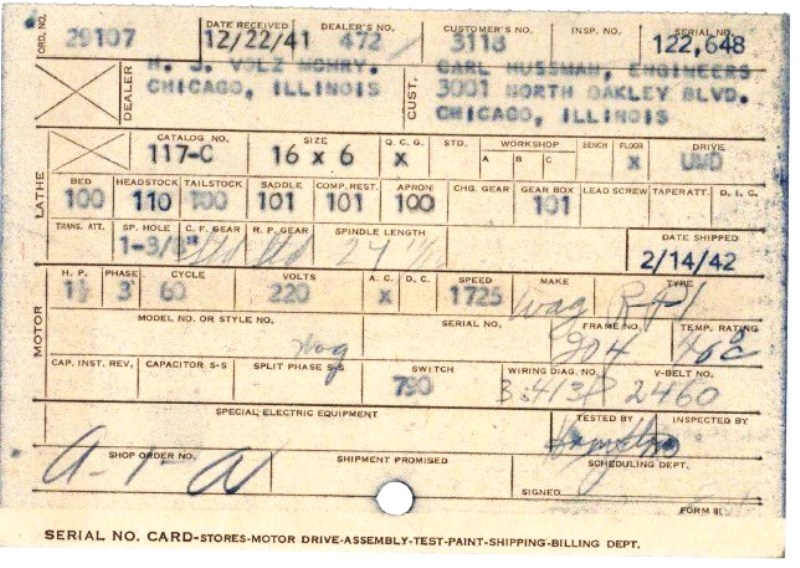 ORD. NO. 29107 DATE RECEIVED 12/22/41 DEALER'S NO. 472 CUSTOMER'S NO. 3118 INSP. NO. SERIAL NO. 122,648
DEALER H. J. VOLZ MCHRY. CUST. CARL HUSSMAN, ENGINEERS
CHICAGO, ILLINOIS 3001 NORTH OAKLEY BLVD.
CHICAGO, ILLINOIS
LATHE
CATALOG NO. SIZE Q. C. G. STD. WORKSHOP BENCH FLOOR DRIVE
117-C 16 x 6 X A B C X UMD
BED HEADSTOCK TAILSTOCK SADDLE COMP. REST. APRON CHG. GEAR GEAR BOX LEAD SCREW TAPER ATT. D. I. C.
100 110 100 101 101 100 101
TRANS. ATT. SP. HOLE C. F. GEAR R. P. GEAR SPINDLE LENGTH DATE SHIPPED
1-3/8" Std Std 24 2/14/42
MOTOR
H. P. PHASE CYCLE VOLTS A. C. D. C. SPEED MAKE TYPE
1½ 3 60 220 X 1725 Wag
MODEL NO. OR STYLE NO. SERIAL NO. FRAME NO. TEMP. RATING
Wag 204 40°C
CAP. INST. REV. CAPACITOR S-S SPLIT PHASE S-S SWITCH WIRING DIAG. NO. V-BELT NO.
790 2460
SPECIAL ELECTRIC EQUIPMENT TESTED BY INSPECTED BY
SHOP ORDER NO. SHIPMENT PROMISED SCHEDULING DEPT.
A-1-A SIGNED
FORM 81
SERIAL NO. CARD-STORES-MOTOR DRIVE-ASSEMBLY-TEST-PAINT-SHIPPING-BILLING DEPT.